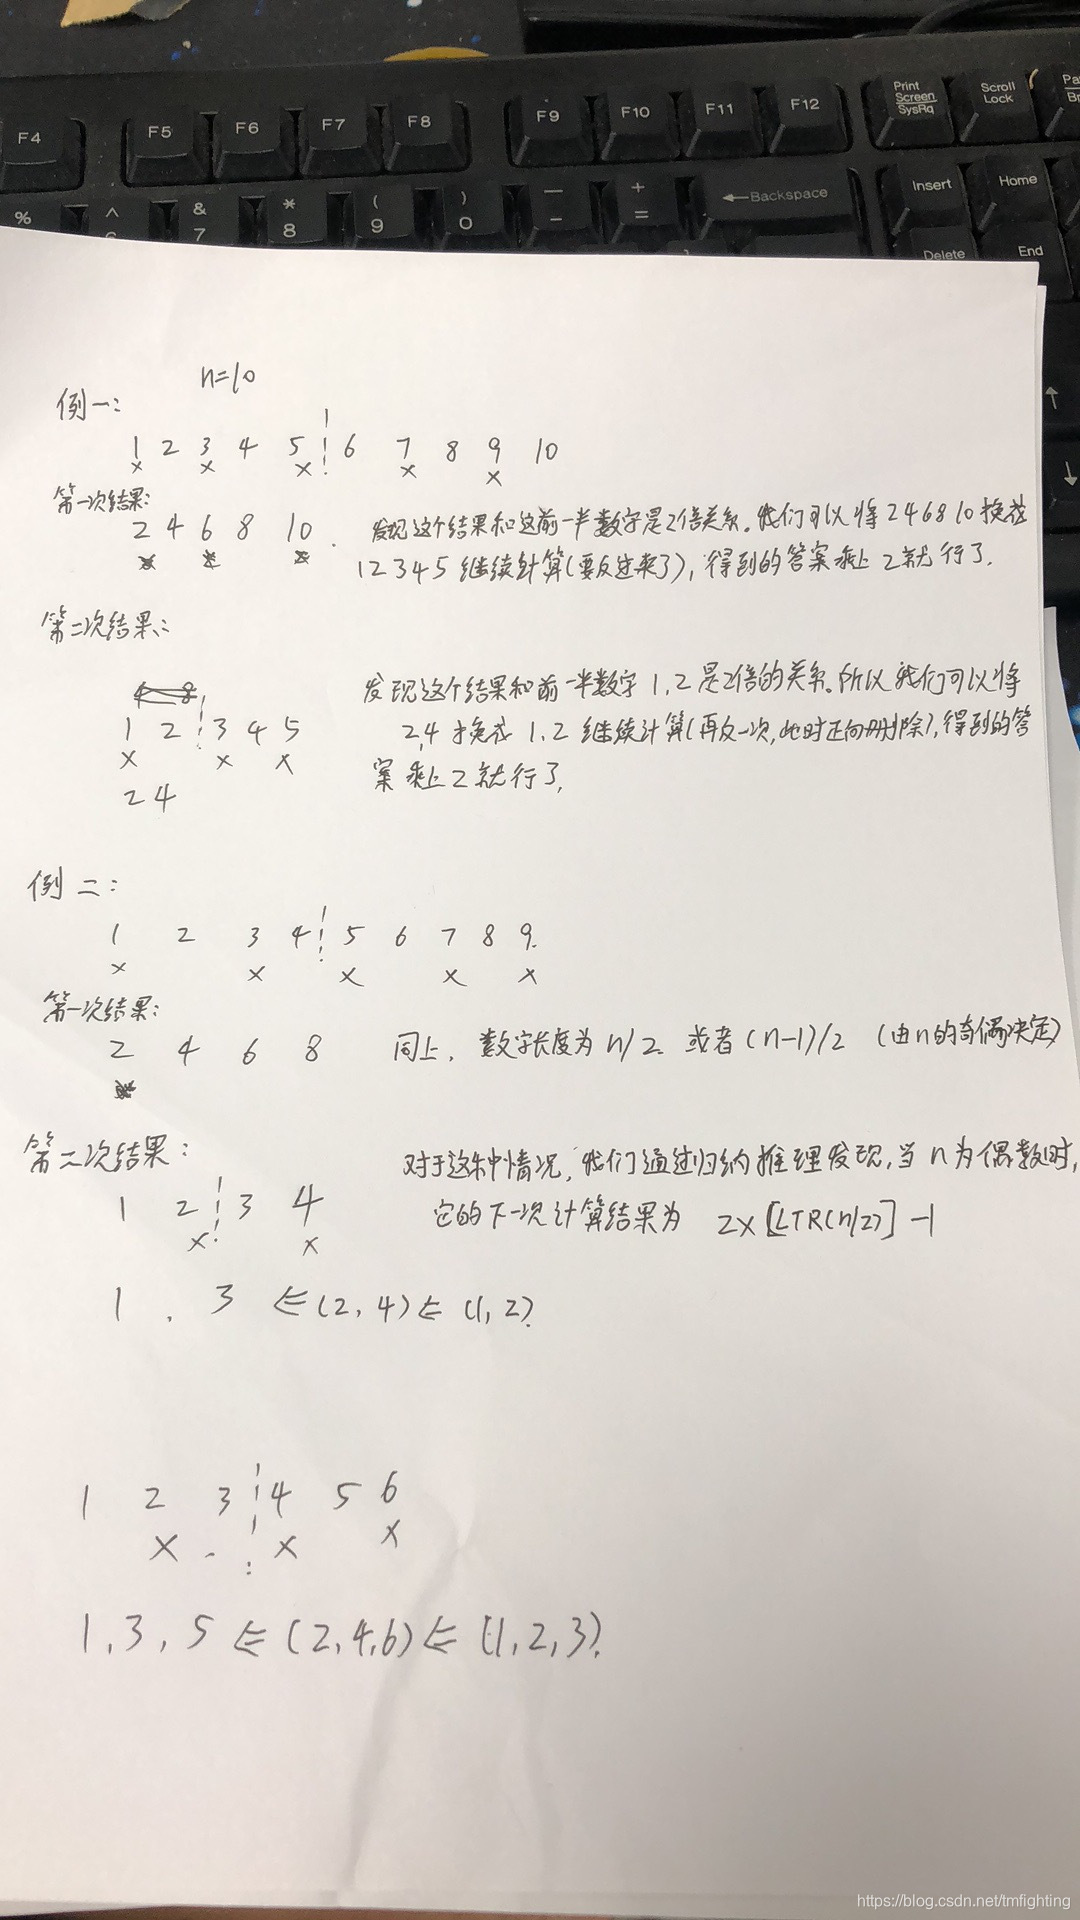 F4 F5 F6 F7 F8 F9 F10 F11 F12 Print Screen SysRq Scroll Lock
% ^ & 7 * 8 ( 9 ) 0 — - + = ←Backspace Insert Home
Delete End
n=10
例一:
1 2 3 4 5 6 7 8 9 10
× × × × ×
第一次结果:
2 4 6 8 10 . 发现这个结果和这前一半数字是2倍关系。我们可以将2 4 6 8 10 换成
1 2 3 4 5 继续计算(要反过来了), 得到的答案乘上 2就行了.
第二次结果:
发现这个结果和前一半数字 1,2 是2倍的关系。所以我们可以将
1 2 3 4 5 2,4 换成 1,2 继续计算(再反一次,此时正向删除),得到的答
× × × 案乘上2就行了,
2 4
例二:
1 2 3 4 5 6 7 8 9.
× × × × ×
第一次结果:
2 4 6 8 同上, 数字长度为 n/2 或者(n-1)/2 (由n的奇偶决定)
第二次结果: 对于这种情况, 我们通过归纳推理发现, 当 n为偶数时,
1 2 3 4 它的下一次计算结果为 2×[LTR(n/2)] -1
× ×
1 . 3 ⇐ (2, 4) ⇐ (1, 2).
1 2 3 4 5 6
× × ×
1, 3, 5 ⇐ (2,4,6) ⇐ (1, 2, 3).
https://blog.csdn.net/tmfighting